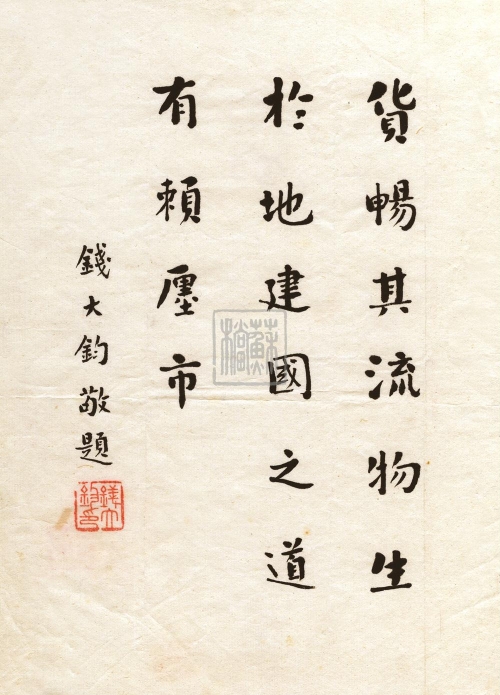 貨暢其流物生
於地建國之道
有賴廛市
錢大鈞敬題
錢大鈞印
蘇檔